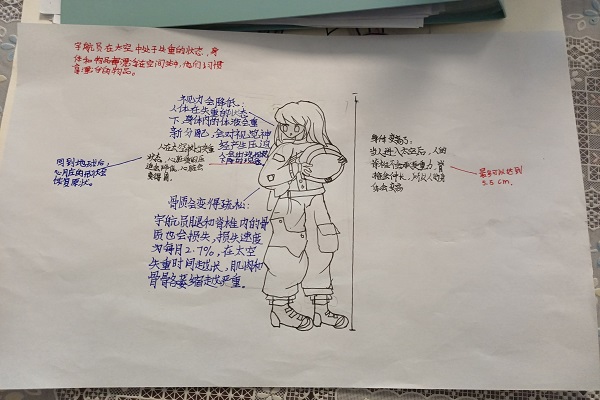 宇航员在太空中处于失重的状态,身
体和物品都漂浮在空间站中,他们习惯
视力会降低:
人体在失重的状态
下,身体内的体液会重
新分配,会对视觉神
经产生压迫
人在太空时
状态,心脏
变得
回到地球后,
心脏
恢复原状。
骨质会变得疏松:
宇航员腿和脊椎内的骨
质也会损失,损失速度
为每月2.7%,在太空
失重时间越长,肌肉和
骨骼萎缩越严重。
身体变高了:
当人进入太空后,人的
脊柱不会承受重力,脊
椎会伸长,所以人的身
体会变高
最多可以达到
5.5cm.